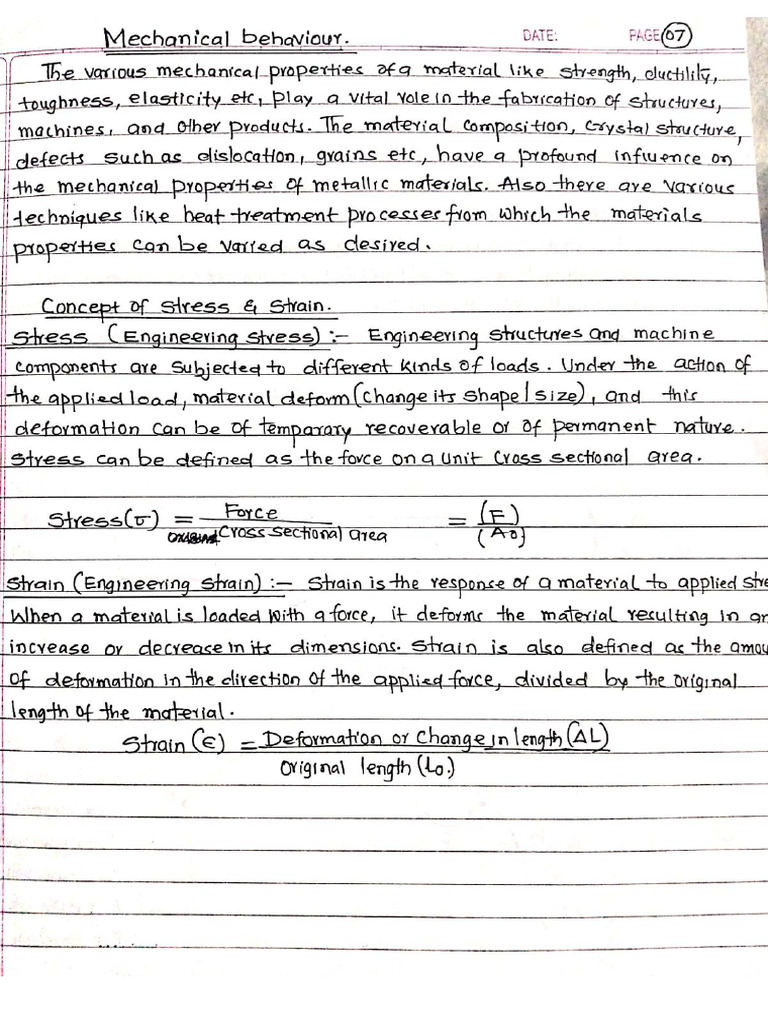 Mechanical behaviour. DATE: PAGE 07
The various mechanical properties of a material like strength, ductility,
toughness, elasticity etc, play a vital role in the fabrication of structures,
machines, and other products. The material composition, crystal structure,
defects such as dislocation, grains etc, have a profound influence on
the mechanical properties of metallic materials. Also there are various
techniques like heat treatment processes from which the materials
properties can be varied as desired.
Concept of Stress & Strain.
Stress (Engineering stress) :- Engineering structures and machine
components are subjected to different kinds of loads. Under the action of
the applied load, material deform (change its shape/size), and this
deformation can be of temparary recoverable or of permanent nature.
Stress can be defined as the force on a unit cross sectional area.
Stress(σ) = Force / cross sectional area = (F) / (A0)
Strain (Engineering strain) :- Strain is the response of a material to applied stre
When a material is loaded with a force, it deforms the material resulting in an
increase or decrease in its dimensions. Strain is also defined as the amou
of deformation in the direction of the applied force, divided by the original
length of the material.
Strain (ϵ) = Deformation or change in length (ΔL)
Original length (L0.)